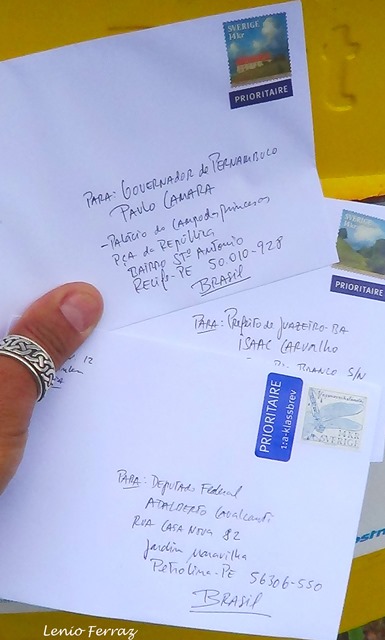 SVERIGE
14kr
PRIORITAIRE
PARA: GOVERNADOR de PERNAMBUCO
PAULO CAMARA
-PALÁCIO do CAMPO das PRINCESAS
PÇA da REPÚBLICA
BAIRRO STº ANTONIO
RECIFE-PE 50.010-928
BRASIL
SVERIGE
PRIORITAIRE
PARA: Prefeito de JUAZEIRO-BA
ISAAC CARVALHO
BRANCO S/N
12
PRIORITAIRE
1:a-klassbrev
SVERIGE
PARA: DEPUTADO Federal
ATALBERTO Cavalcanti
RUA CASA NOVA 82
Jardim Maravilha
Petrolina-PE 56306-550
BRASIL
Lenio Ferraz